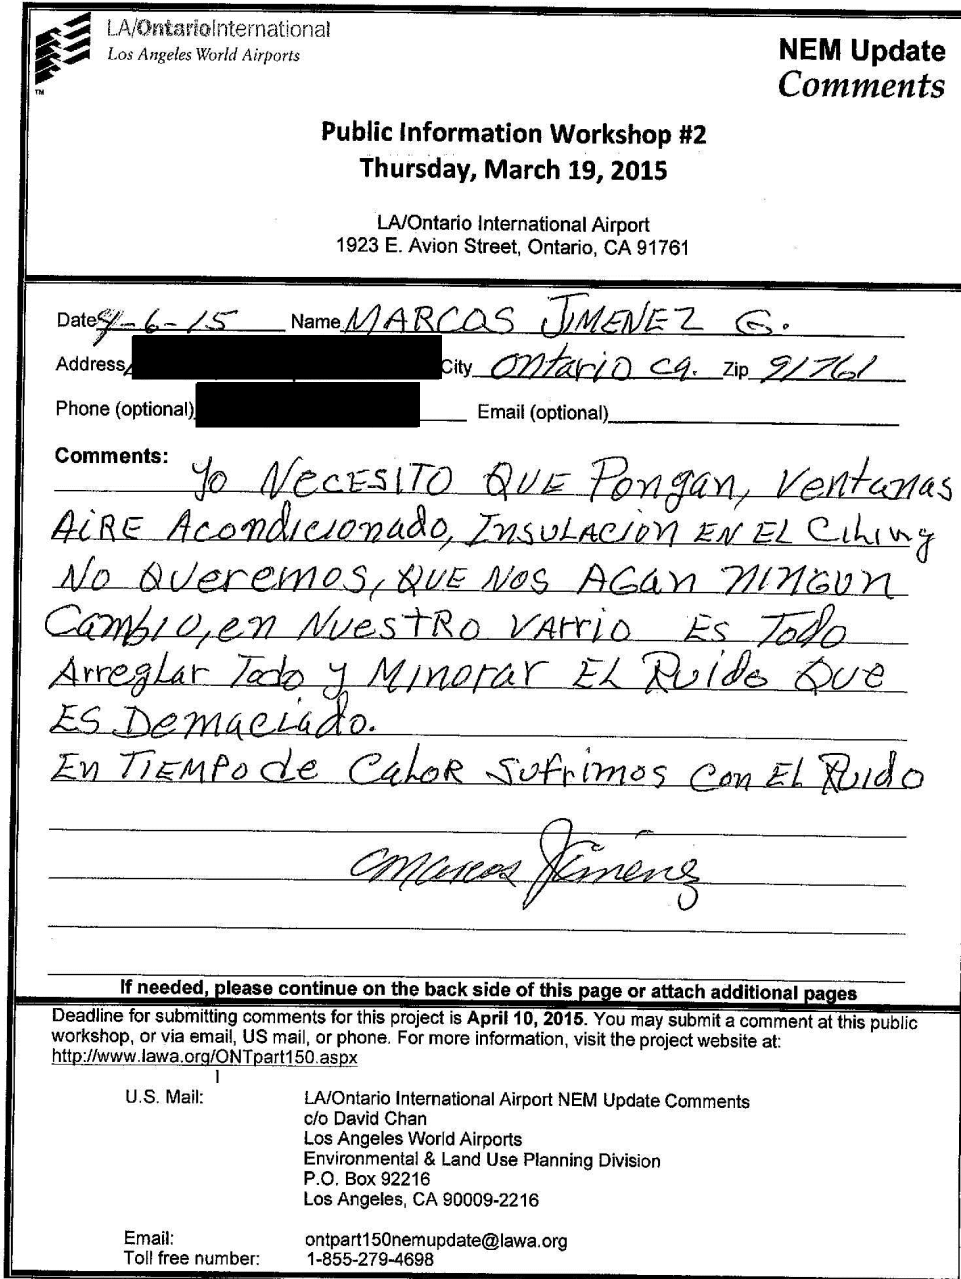 LA/OntarioInternational
Los Angeles World Airports
TM
NEM Update
Comments
Public Information Workshop #2
Thursday, March 19, 2015
LA/Ontario International Airport
1923 E. Avion Street, Ontario, CA 91761
Date 4-6-15 Name MARCOS JIMENEZ G.
Address City Ontario ca. Zip 91761
Phone (optional) Email (optional)
Comments:
Yo NECESITO QUE Pongan, Ventanas
AIRE Acondicionado, INSULACION EN EL Cihing
No Queremos, QUE NOS AGAN NINGUN
Cambio, en NUESTRO VArrio Es Todo
Arreglar Todo y Minorar EL Ruido QUE
ES Demaciado.
En TIEMPO de CaLOR Sufrimos Con EL Ruido
Marcos Jimenez
If needed, please continue on the back side of this page or attach additional pages
Deadline for submitting comments for this project is April 10, 2015. You may submit a comment at this public
workshop, or via email, US mail, or phone. For more information, visit the project website at:
http://www.lawa.org/ONTpart150.aspx
U.S. Mail: LA/Ontario International Airport NEM Update Comments
c/o David Chan
Los Angeles World Airports
Environmental & Land Use Planning Division
P.O. Box 92216
Los Angeles, CA 90009-2216
Email: ontpart150nemupdate@lawa.org
Toll free number: 1-855-279-4698